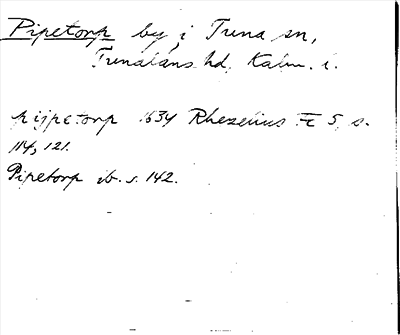 Pipetorp by i Tuna sn,
Tunaläns hd, Kalm. l.
pijpetorp 1634 Rhezelius Fc 5, s.
114, 121.
Pipetorp ib. s. 142.